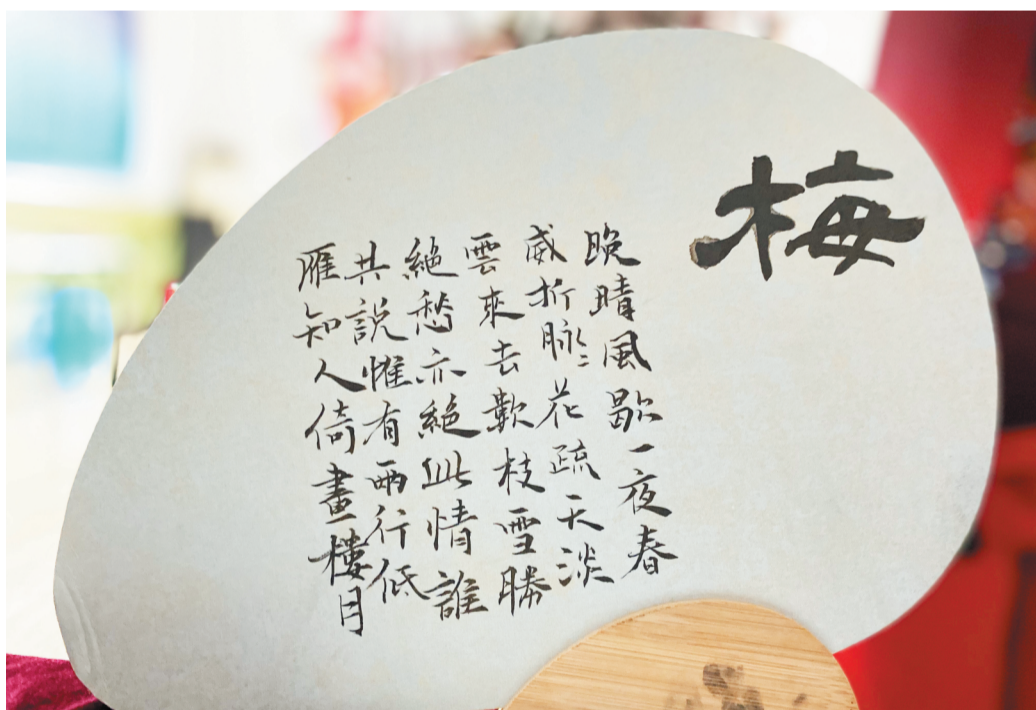 梅
晚晴風歇一夜春
威折脉〻花疏天淡
雲來去數枝雪勝
絕愁亦絕此情誰
共說惟有兩行低
雁知人倚畫樓月